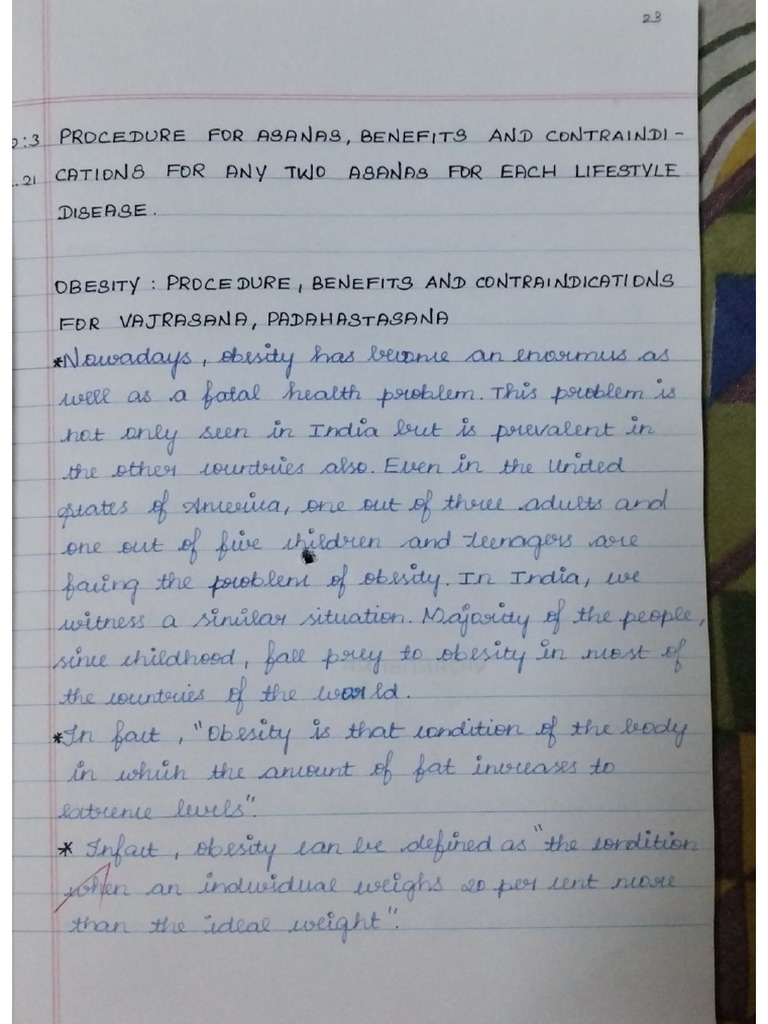 23
:3 PROCEDURE FOR ASANAS, BENEFITS AND CONTRAINDI-
.21 CATIONS FOR ANY TWO ASANAS FOR EACH LIFESTYLE
DISEASE.
OBESITY : PROCEDURE, BENEFITS AND CONTRAINDICATIONS
FOR VAJRASANA, PADAHASTASANA
*Nowadays, obesity has become an enormus as
well as a fatal health problem. This problem is
not only seen in India but is prevalent in
the other countries also. Even in the United
States of America, one out of three adults and
one out of five children and teenagers are
facing the problem of obesity. In India, we
witness a similar situation. Majority of the people,
since childhood, fall prey to obesity in most of
the countries of the world.
*In fact, "Obesity is that condition of the body
in which the amount of fat increases to
extreme levels".
* Infact, obesity can be defined as "the condition
when an individual weighs 20 per cent more
than the ideal weight".